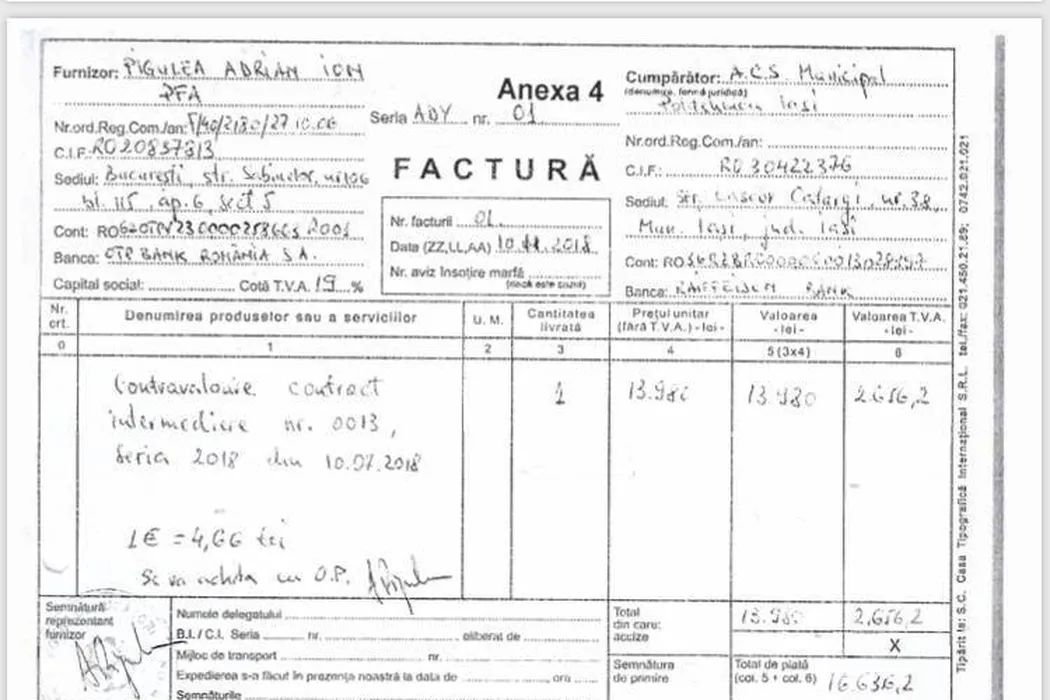 Furnizor: PIGULEA ADRIAN ION
PFA
Nr.ord.Reg.Com./an: F/40/2180/27.10.06
C.I.F. RO 20837813
Sediul: București, str. Sabinelor, nr 106
bl. 115, ap. 6, sect 5
Cont: RO
Banca: OTP BANK ROMÂNIA S.A.
Capital social: Cotă T.V.A. 19 %
Anexa 4
Seria ADY nr. 01
FACTURĂ
Nr. facturii 01
Data (ZZ,LL,AA) 10.11.2018
Nr. aviz însoțire marfă
(dacă este cazul)
Cumpărător: A.C.S. Municipal
(denumire, formă juridică)
Politehnica Iași
Nr.ord.Reg.Com./an:
C.I.F.: RO 30422376
Sediul: Str. Lascăr Catargi, nr. 38,
Mun. Iași, jud. Iași
Cont: RO
Banca: RAIFFEISEN BANK
Nr. crt. Denumirea produselor sau a serviciilor U. M. Cantitatea livrată Prețul unitar (fără T.V.A.) - lei - Valoarea - lei - Valoarea T.V.A. - lei -
0 1 2 3 4 5 (3x4) 6
Contravaloare contract 1 13.980 13.980 2.656,2
intermediere nr. 0013,
seria 2018 din 10.07.2018
1€ = 4,66 lei
Se va achita cu O.P.
Semnătura reprezentant furnizor
Numele delegatului
B.I. / C.I. Seria nr. eliberat de
Mijloc de transport nr.
Expedierea s-a făcut în prezența noastră la data de ora
Semnăturile
Total 13.980 2.656,2
din care:
accize X
Semnătura de primire
Total de plată
(col. 5 + col. 6) 16.636,2
Tipărit la: S.C. Casa Tipografică Internațional S.R.L. tel./fax: 021.450.21.89; 0742.021.021